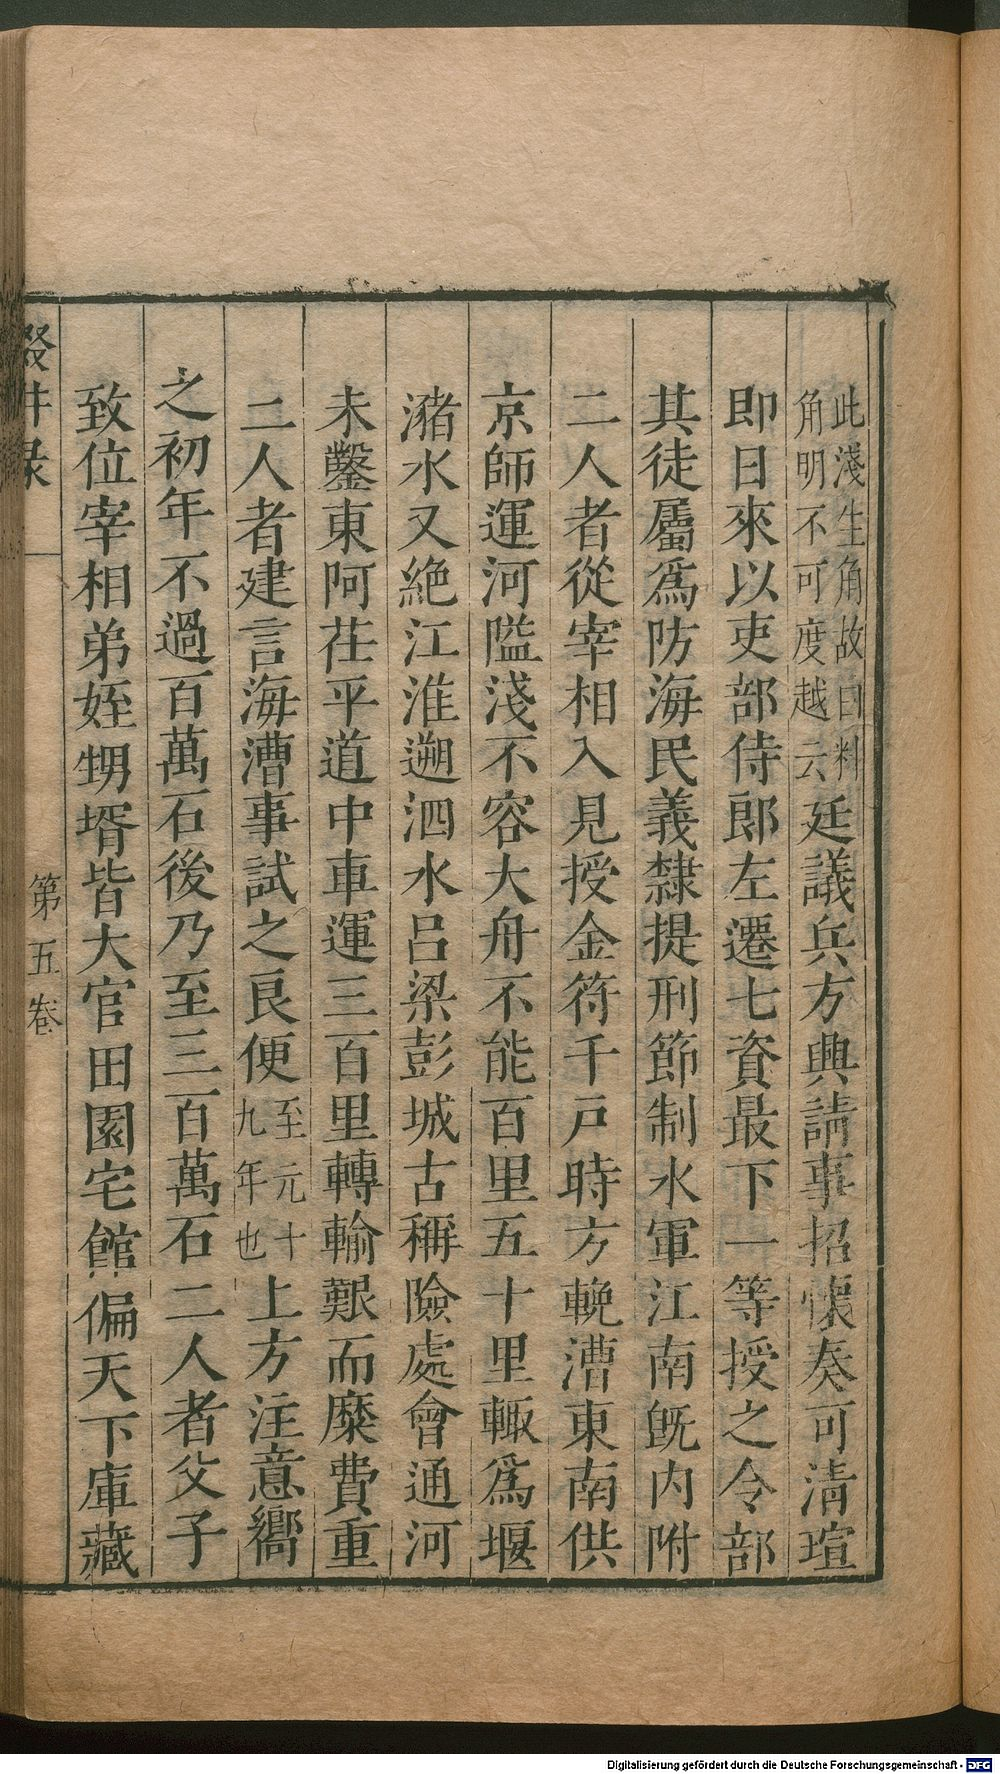 此淺生角故曰料角明不可度越云廷議兵方興請事招懷奏可淸瑄
即日來以吏部侍郞左遷七資最下一等授之令部
其徒屬爲防海民義隸提刑節制水軍江南旣内附
二人者從宰相入見授金符千戸時方輓漕東南供
京師運河隘淺不容大舟不能百里五十里輙爲堰
瀦水又絶江淮遡泗水呂梁彭城古稱險處會通河
未鑿東阿茌平道中車運三百里轉輸艱而糜費重
二人者建言海漕事試之良便至元十九年也上方注意嚮
之初年不過百萬石後乃至三百萬石二人者父子
致位宰相弟姪甥壻皆大官田園宅館徧天下庫藏
第五卷
Digitalisierung gefördert durch die Deutsche Forschungsgemeinschaft - DFG